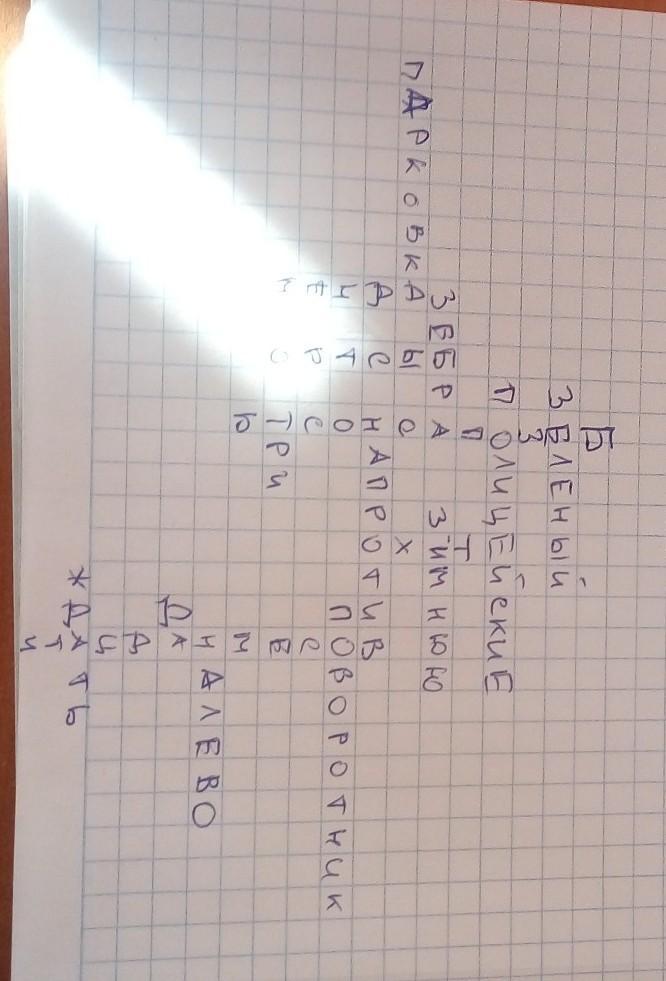 Б
ЗЕЛЕНЫЙ
З
ПОЛИЦЕЙСКИЕ
П Т
ЗЕБРА ЗИМНЮЮ
ПАРКОВКА Ы С Х
Д С НАПРОТИВ
Н Т О ПОВОРОТНИК
Е Р С С
Й О ТРИ Е
Ь М
НАЛЕВО
ДА
Д
Ц
ЖДАТЬ
Т
Ь